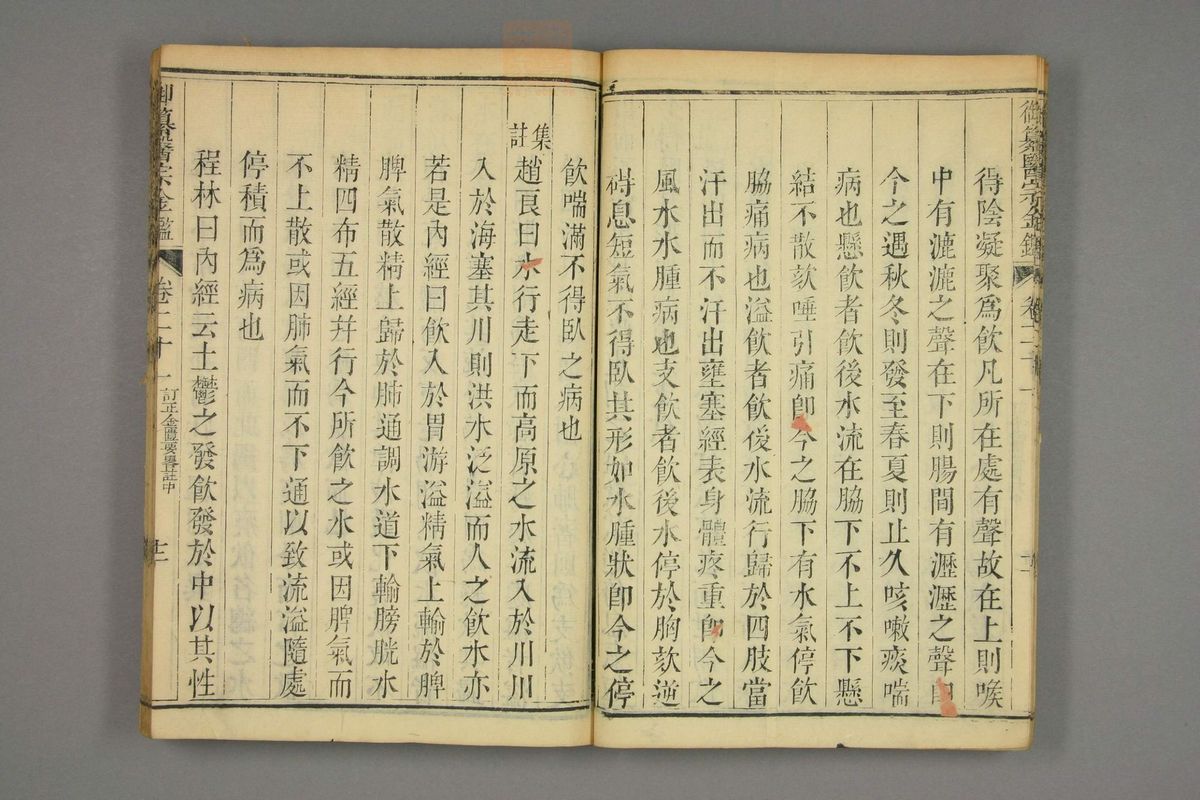 御纂醫宗金鑑
得陰凝聚爲飲凡所在處有聲故在上則喉
中有漉漉之聲在下則腸間有瀝瀝之聲即
今之遇秋冬則發至春夏則止久咳嗽痰喘
病也懸飲者飲後水流在脇下不上不下懸
結不散欬唾引痛即今之脇下有水氣停飲
脇痛病也溢飲者飲後水流行歸於四肢當
汗出而不汗出壅塞經表身體疼重即今之
風水水腫病也支飲者飲後水停於胸欬逆
碍息短氣不得臥其形如水腫狀即今之停
飲喘滿不得臥之病也
集註
趙良曰水行走下而高原之水流入於川川
入於海塞其川則洪水泛溢而人之飲水亦
若是內經曰飲入於胃游溢精氣上輸於脾
脾氣散精上歸於肺通調水道下輸膀胱水
精四布五經幷行今所飲之水或因脾氣而
不上散或因肺氣而不下通以致流溢隨處
停積而爲病也
程林曰內經云土鬱之發飲發於中以其性
御纂醫宗金鑑
卷二十一
訂正金匱要畧註中
十二